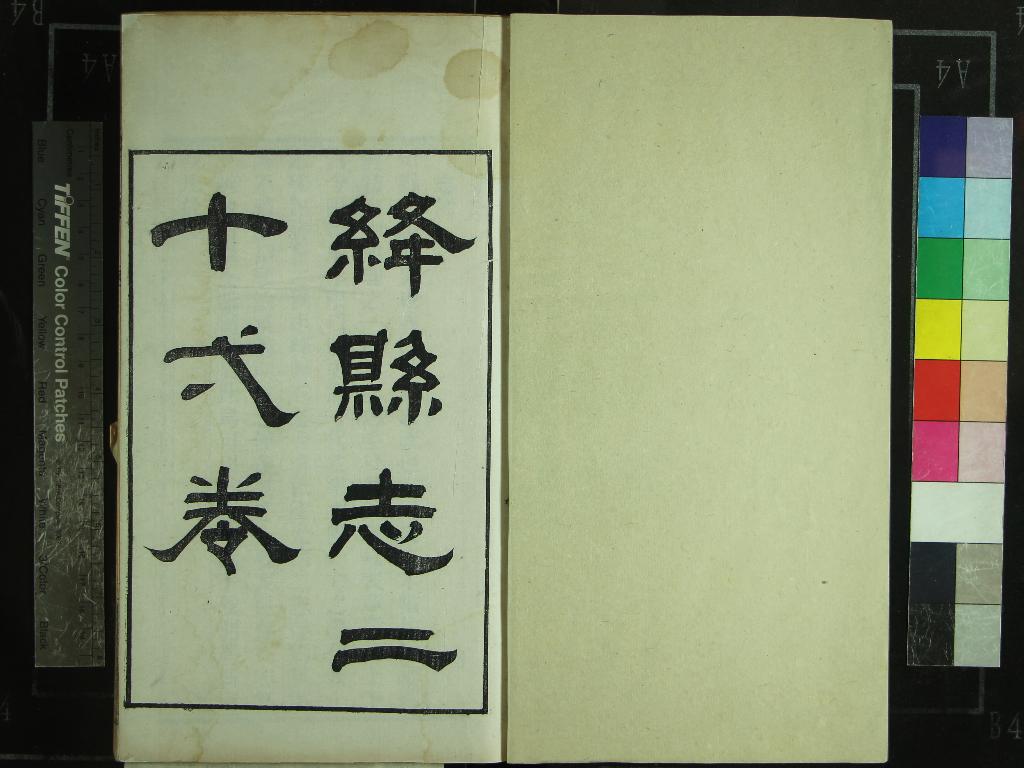 絳縣志二
十弌卷
TIFFEN Color Control Patches
Centimetres
Blue
Cyan
Green
Yellow
Red
Magenta
White
3/Color
Black
B4
A4
A4
B4